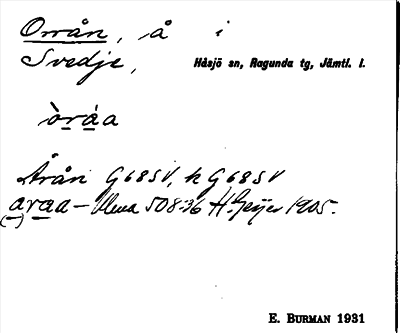 Orrån, å i
Svedje, Håsjö sn, Ragunda tg, Jämtl. l.
òráa
Årån G68SV, k G68SV
araa – Ulma 508:36 H. Geijer 1905.
(–)
E. BURMAN 1931